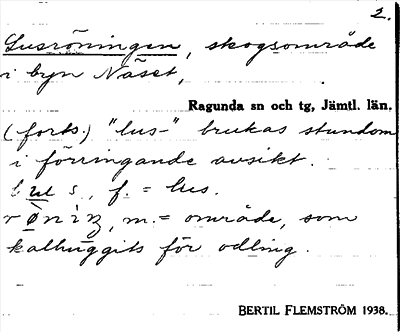 2.
Lusröningen, skogsområde
i byn Näset,
Ragunda sn och tg, Jämtl. län.
(forts.) "lus-" brukas stundom
i förringande avsikt.
f. = lus.
m. = område, som
kalhuggits för odling.
BERTIL FLEMSTRÖM 1938.